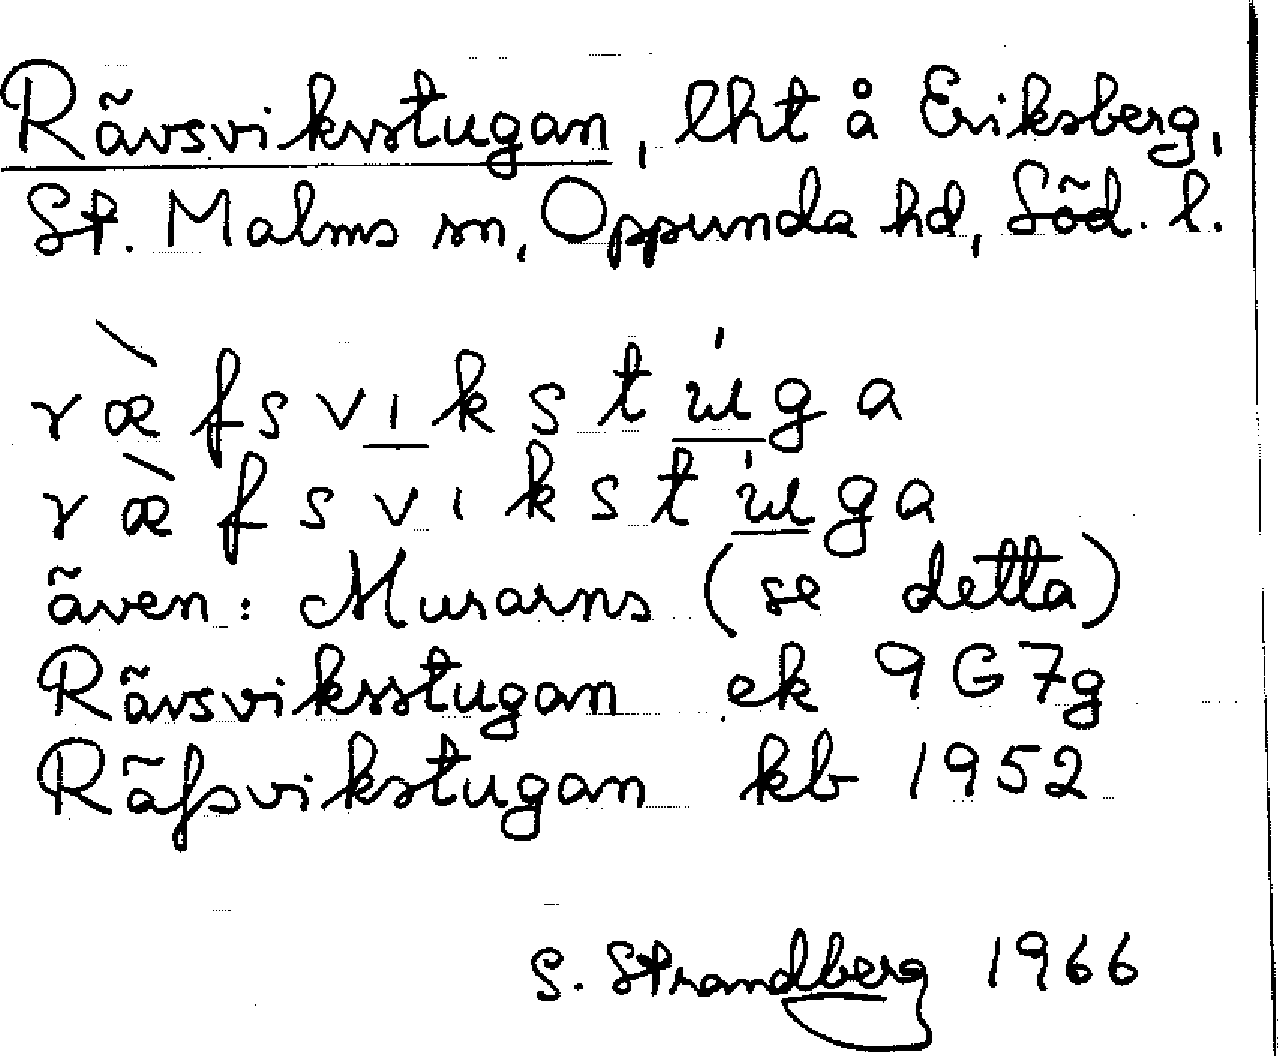 Rävsviksstugan, lht å Eriksberg,
St. Malms sn, Oppunda hd, Söd. l.
ræ̀fsvıkstúga
ræ̀fsvıkstúga
även: Murarns (se detta)
Rävsviksstugan ek 9G7g
Räfsvikstugan kb 1952
S. Strandberg 1966